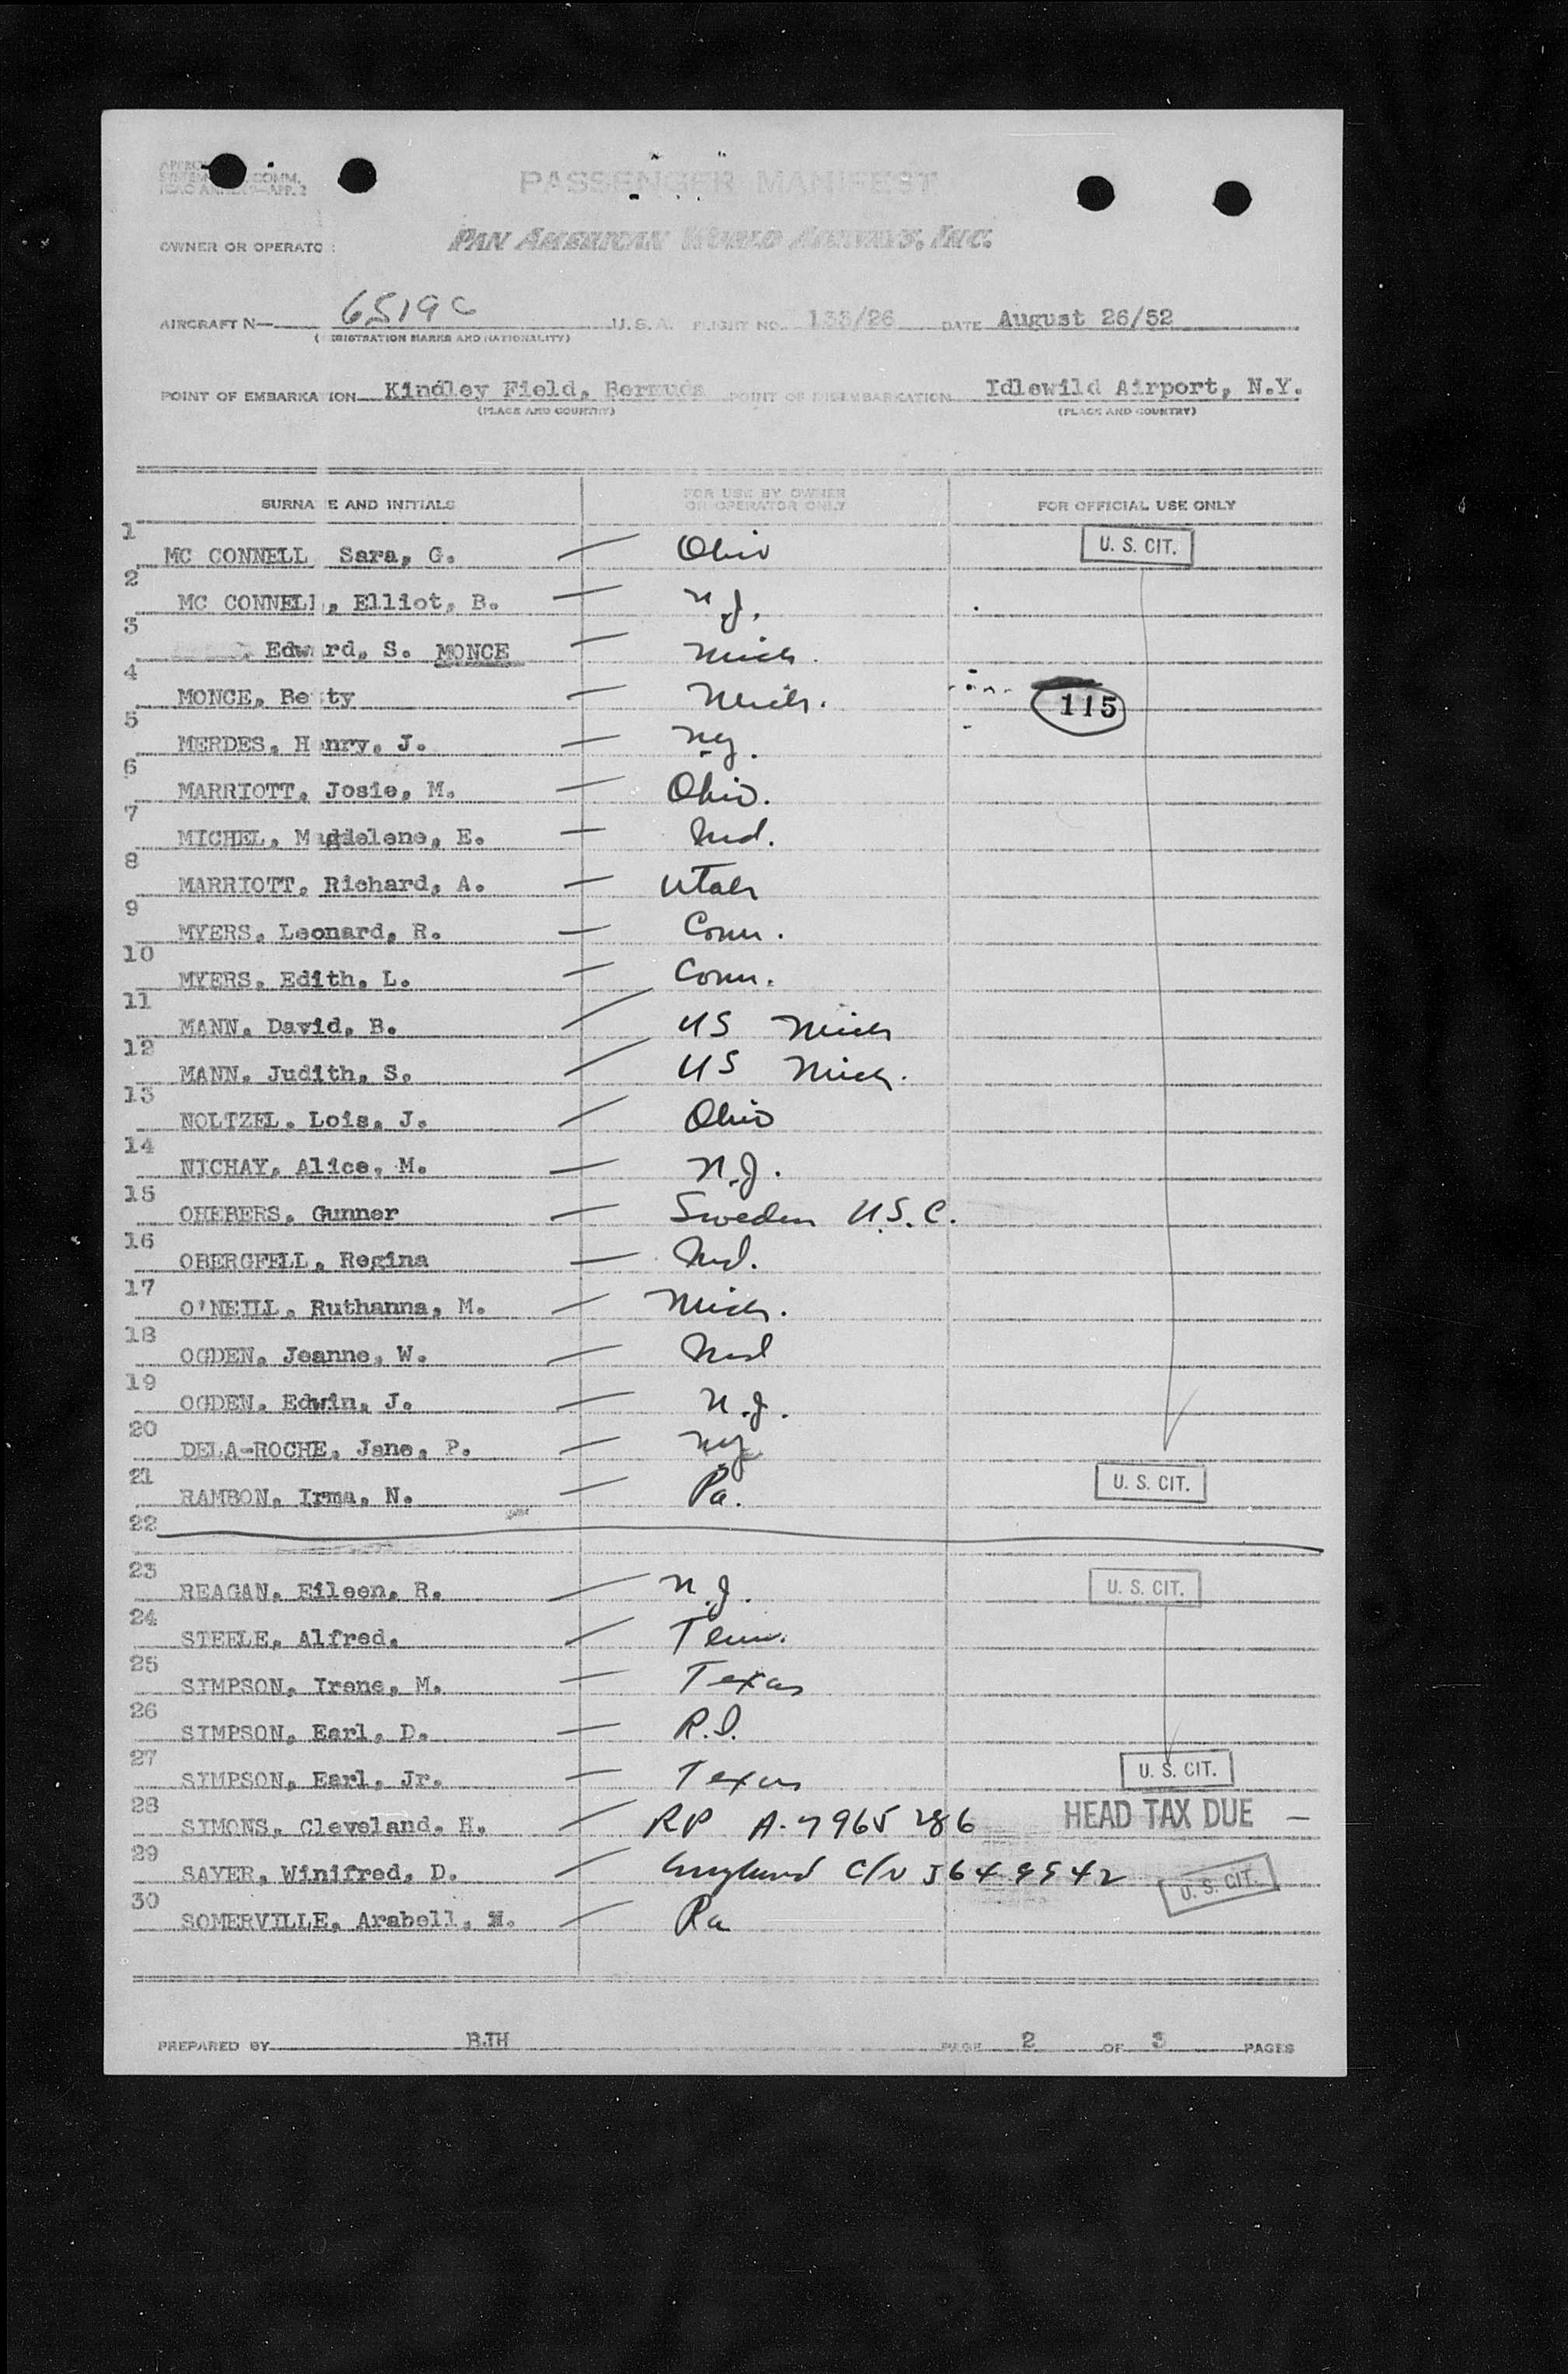 PASSENGER MANIFEST
OWNER OR OPERATO : PAN AMERICAN WORLD AIRWAYS, INC.
AIRCRAFT N— 6519C U.S.A. FLIGHT NO. 133/26 DATE August 26/52
POINT OF EMBARKA ION Kindley Field, Bermuda POINT OF DISEMBARKATION Idlewild Airport, N.Y.
(PLACE AND COUNTRY) (PLACE AND COUNTRY)
SURNA E AND INITIALS FOR USE BY OWNER OR OPERATOR ONLY FOR OFFICIAL USE ONLY
1 MC CONNELL Sara, G. — Ohio U. S. CIT.
2 MC CONNELL, Elliot, B. — N.J.
3 Edw rd, S. MONCE — Mich.
4 MONCE, Be ty — Mich. 115
5 MERDES, H nry, J. — NY.
6 MARRIOTT, Josie, M. — Ohio.
7 MICHEL, Magdelene, E. — Md.
8 MARRIOTT, Richard, A. — Utah
9 MYERS, Leonard, R. — Conn.
10 MYERS, Edith, L. — Conn.
11 MANN, David, B. — US Mich
12 MANN, Judith, S. — US Mich.
13 NOLTZEL, Lois, J. — Ohio
14 NICHAY, Alice, M. — N.J.
15 OHEBERS, Gunner — Sweden U.S.C.
16 OBERGFELL, Regina — Md.
17 O'NEILL, Ruthanna, M. — Mich.
18 OGDEN, Jeanne, W. — Md
19 OGDEN, Edwin, J. — N.J.
20 DELA-ROCHE, Jane, P. — NY
21 RAMBON, Irma, N. — Pa. U. S. CIT.
22
23 REAGAN, Eileen, R. — N.J. U. S. CIT.
24 STEELE, Alfred. — Tenn.
25 SIMPSON, Irene, M. — Texas
26 SIMPSON, Earl, D. — R.I.
27 SIMPSON, Earl, Jr. — Texas U. S. CIT.
28 SIMONS, Cleveland, H. — RP A-7965286 HEAD TAX DUE —
29 SAYER, Winifred, D. — England C/N U. S. CIT.
30 SOMERVILLE, Arabell, M. — Pa
PREPARED BY BJH PAGE 2 OF 3 PAGES